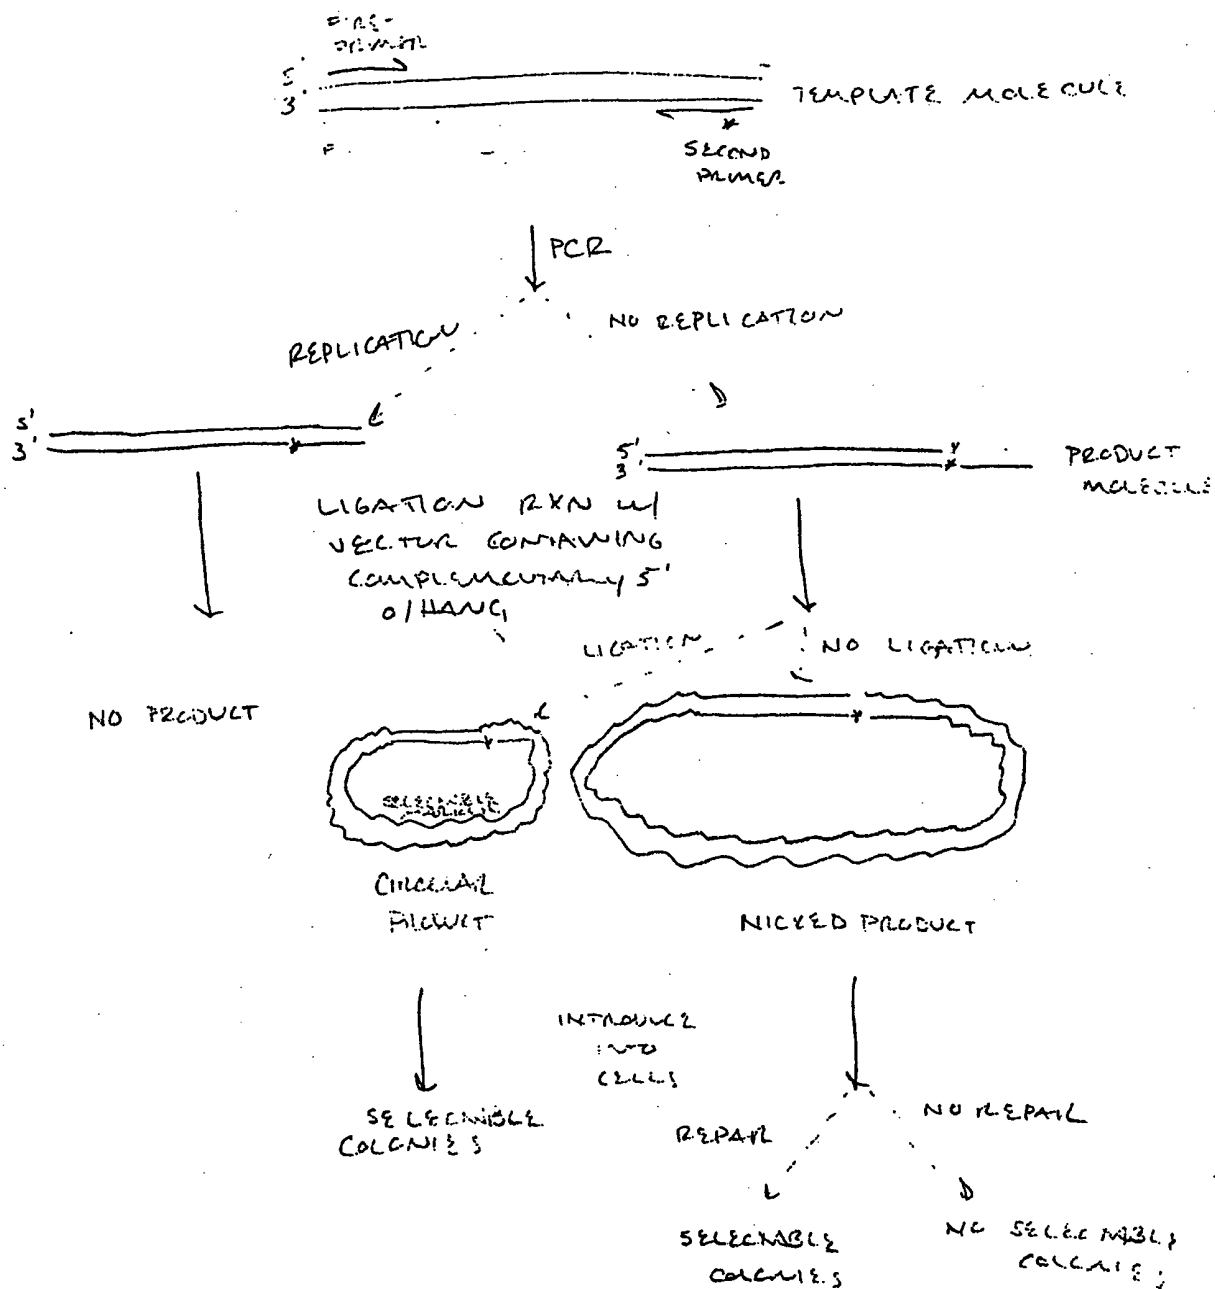 PRIMER
5'
3'
TEMPLATE MOLECULE
SECOND
PRIMER
PCR
REPLICATION
NO REPLICATION
5'
3'
5'
3'
PRODUCT
MOLECULE
LIGATION RXN W/
VECTOR CONTAINING
COMPLEMENTARY 5'
O/HANG
LIGATION
NO LIGATION
NO PRODUCT
SELECTABLE
MARKER
CIRCULAR
PRODUCT
NICKED PRODUCT
INTRODUCE
INTO
CELLS
SELECTABLE
COLONIES
REPAIR
NO REPAIR
SELECTABLE
COLONIES
NO SELECTABLE
COLONIES